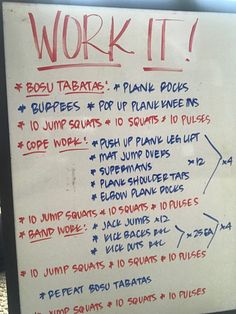 WORK IT!
* BOSU TABATAS: * PLANK ROCKS
* BURPEES * POP UP PLANK KNEE INS
* 10 JUMP SQUATS * 10 SQUATS * 10 PULSES
* CORE WORK: * PUSH UP PLANK LEG LIFT
* MAT JUMP OVERS
* SUPERMANS x12 x4
* PLANK SHOULDER TAPS
* ELBOW PLANK ROCKS
* 10 JUMP SQUATS * 10 SQUATS * 10 PULSES
* BAND WORK: * JACK JUMPS x12
* KICK BACKS R+L x25 EA x4
* KICK OUTS R+L
* 10 JUMP SQUATS * 10 SQUATS * 10 PULSES
* REPEAT BOSU TABATAS
* 10 JUMP SQUATS * 10 SQUATS * 10 PULSES